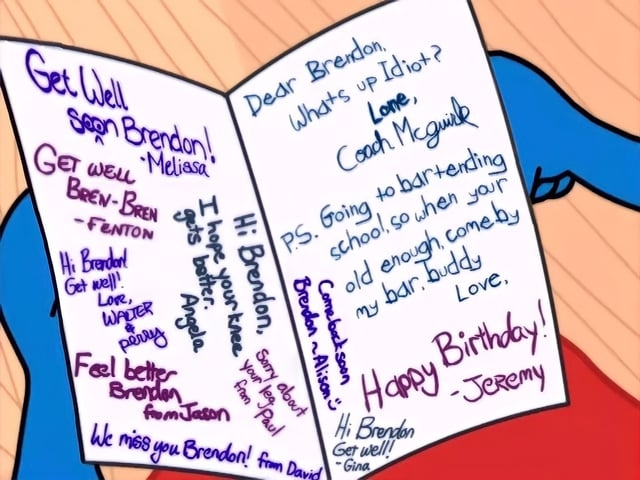 Get Well
soon Brendon!
- Melissa
GET WELL
BREN-BREN
- FENTON
Hi Brendon!
Get well!
Love,
WALTER
&
perry
Hi Brendon,
I hope your knee
gets better.
Angela
Feel better
Brendon
from Jason
Sorry about
your leg,
from Paul
We miss you Brendon! from David
Dear Brendon,
Whats up Idiot?
Love,
Coach Mcguirk
P.S. Going to bartending
school, so when your
old enough, come by
my bar, buddy
Love,
Come back soon
Brendon ~ Alison :)
Happy Birthday!
- JEREMY
Hi Brendon
Get well!!
- Gina